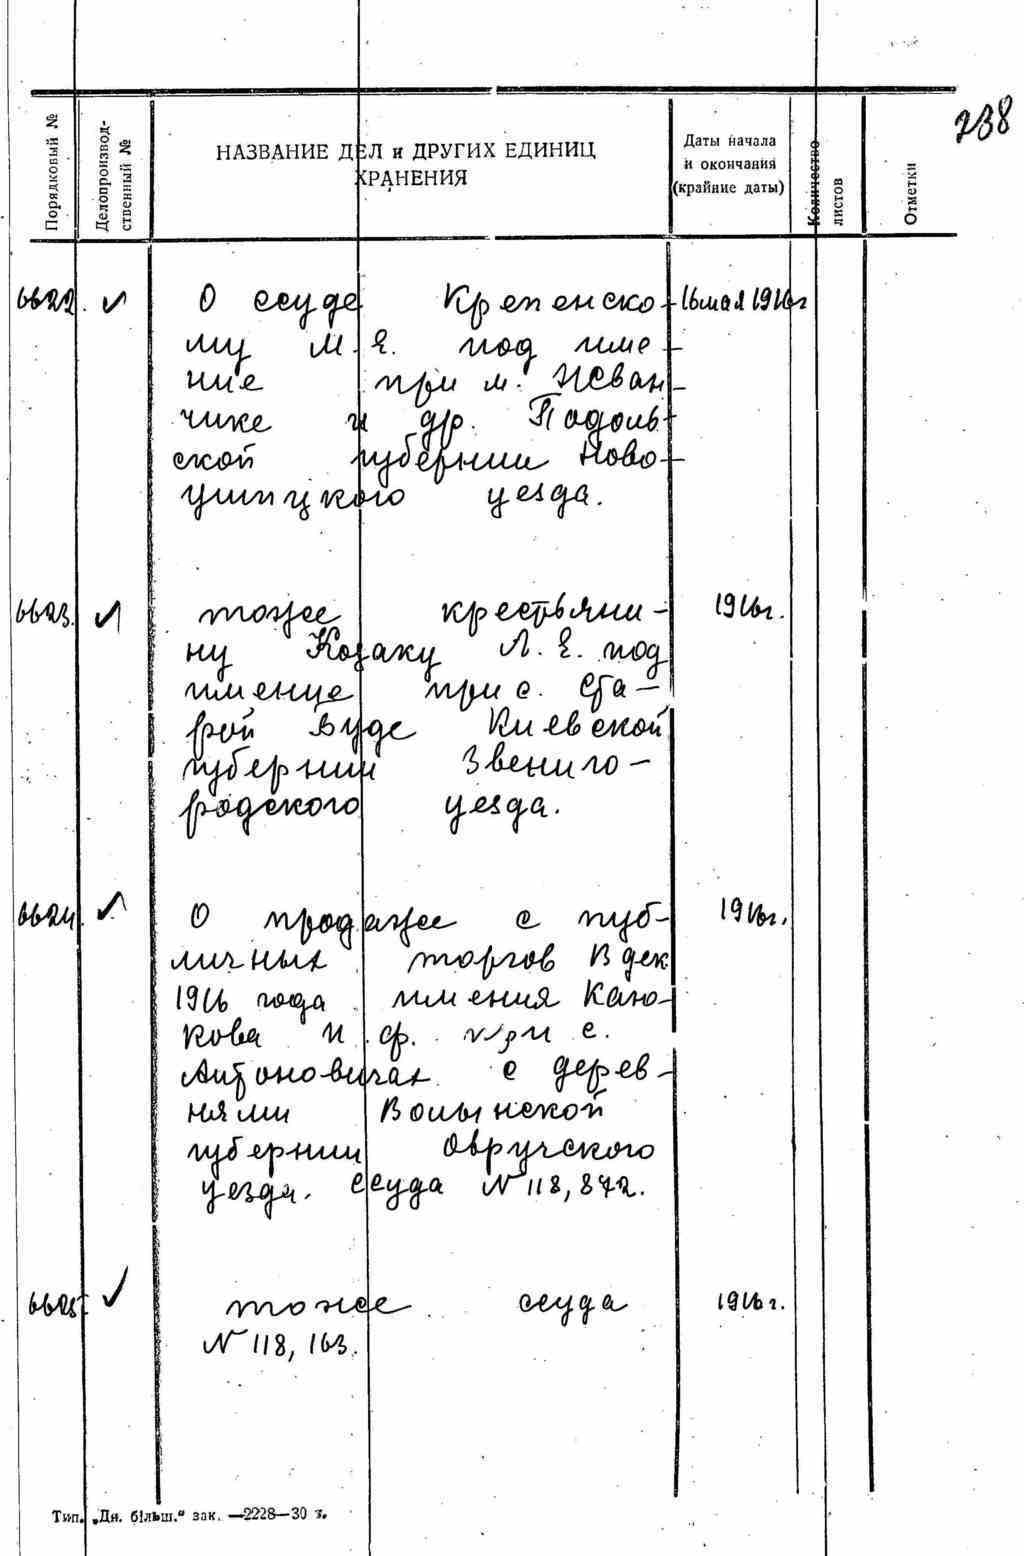 238
Порядковый №
Делопроизвод-
ственный №
НАЗВАНИЕ ДЕЛ и ДРУГИХ ЕДИНИЦ
ХРАНЕНИЯ
Даты начала
и окончания
(крайние даты)
Количество
листов
Отметки
6622. О ссуде Крепенско- 16 мая 1916г
му М. Е. под име-
ние при м. Исван-
чике и др. Подоль-
ской губернии Ново-
ушицкого уезда.
6623. тоже крестьяни- 1916г.
ну Козаку Л. Е. под
именце при с. Ста-
рой Буде Киевской
губернии Звениго-
родского уезда.
6624 О продаже с пуб- 1916г.
личных торгов В дек
1916 года имения Каню-
кова И. ф. при с.
Антоновичах с дерев-
нями Волынской
губернии Овручского
уезда. ссуда № 118,872.
6625 тоже ссуда 1916г.
№ 118, 163.
Тип. „Дн. більш.“ зак. —2228—30 т.